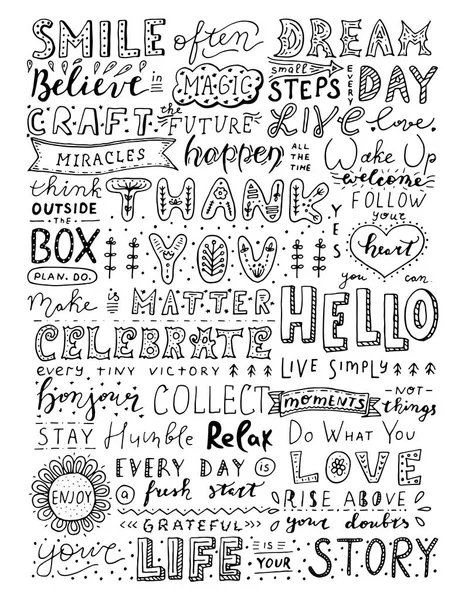 SMILE often DREAM
Believe in MAGIC small STEPS EVERY DAY
CRAFT the FUTURE LIVE love
MIRACLES happen ALL THE TIME Wake Up
think OUTSIDE THE BOX
THANK YOU
YES
welcome
FOLLOW your heart
PLAN. DO.
you can
make is MATTER
HELLO
CELEBRATE
every TINY VICTORY LIVE SIMPLY
bonjour COLLECT moments -NOT- things
STAY Humble Relax DO WHAT YOU
LOVE
EVERY DAY is
@ fresh start
ENJOY
RISE ABOVE
<<GRATEFUL>>> your doubts
your LIFE IS YOUR STORY